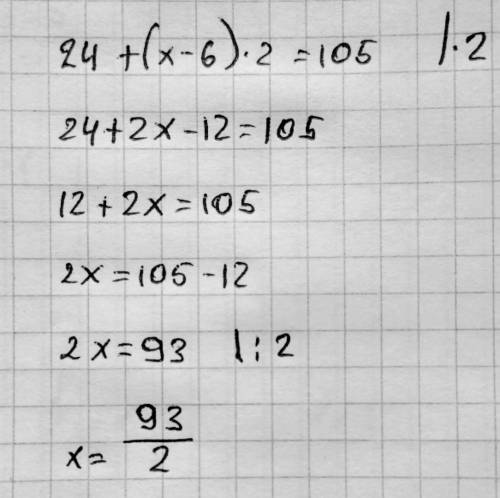 24 + (x - 6) · 2 = 105 | · 2
24 + 2x - 12 = 105
12 + 2x = 105
2x = 105 - 12
2x = 93 | : 2
x = 93/2